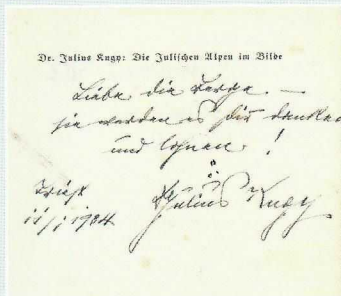 Dr. Julius Kugy: Die Julischen Alpen im Bilde
Liebe die Berge. —
sie werden es Dir danken
und lohnen!
Triest
11/1 1934
Julius Kugy